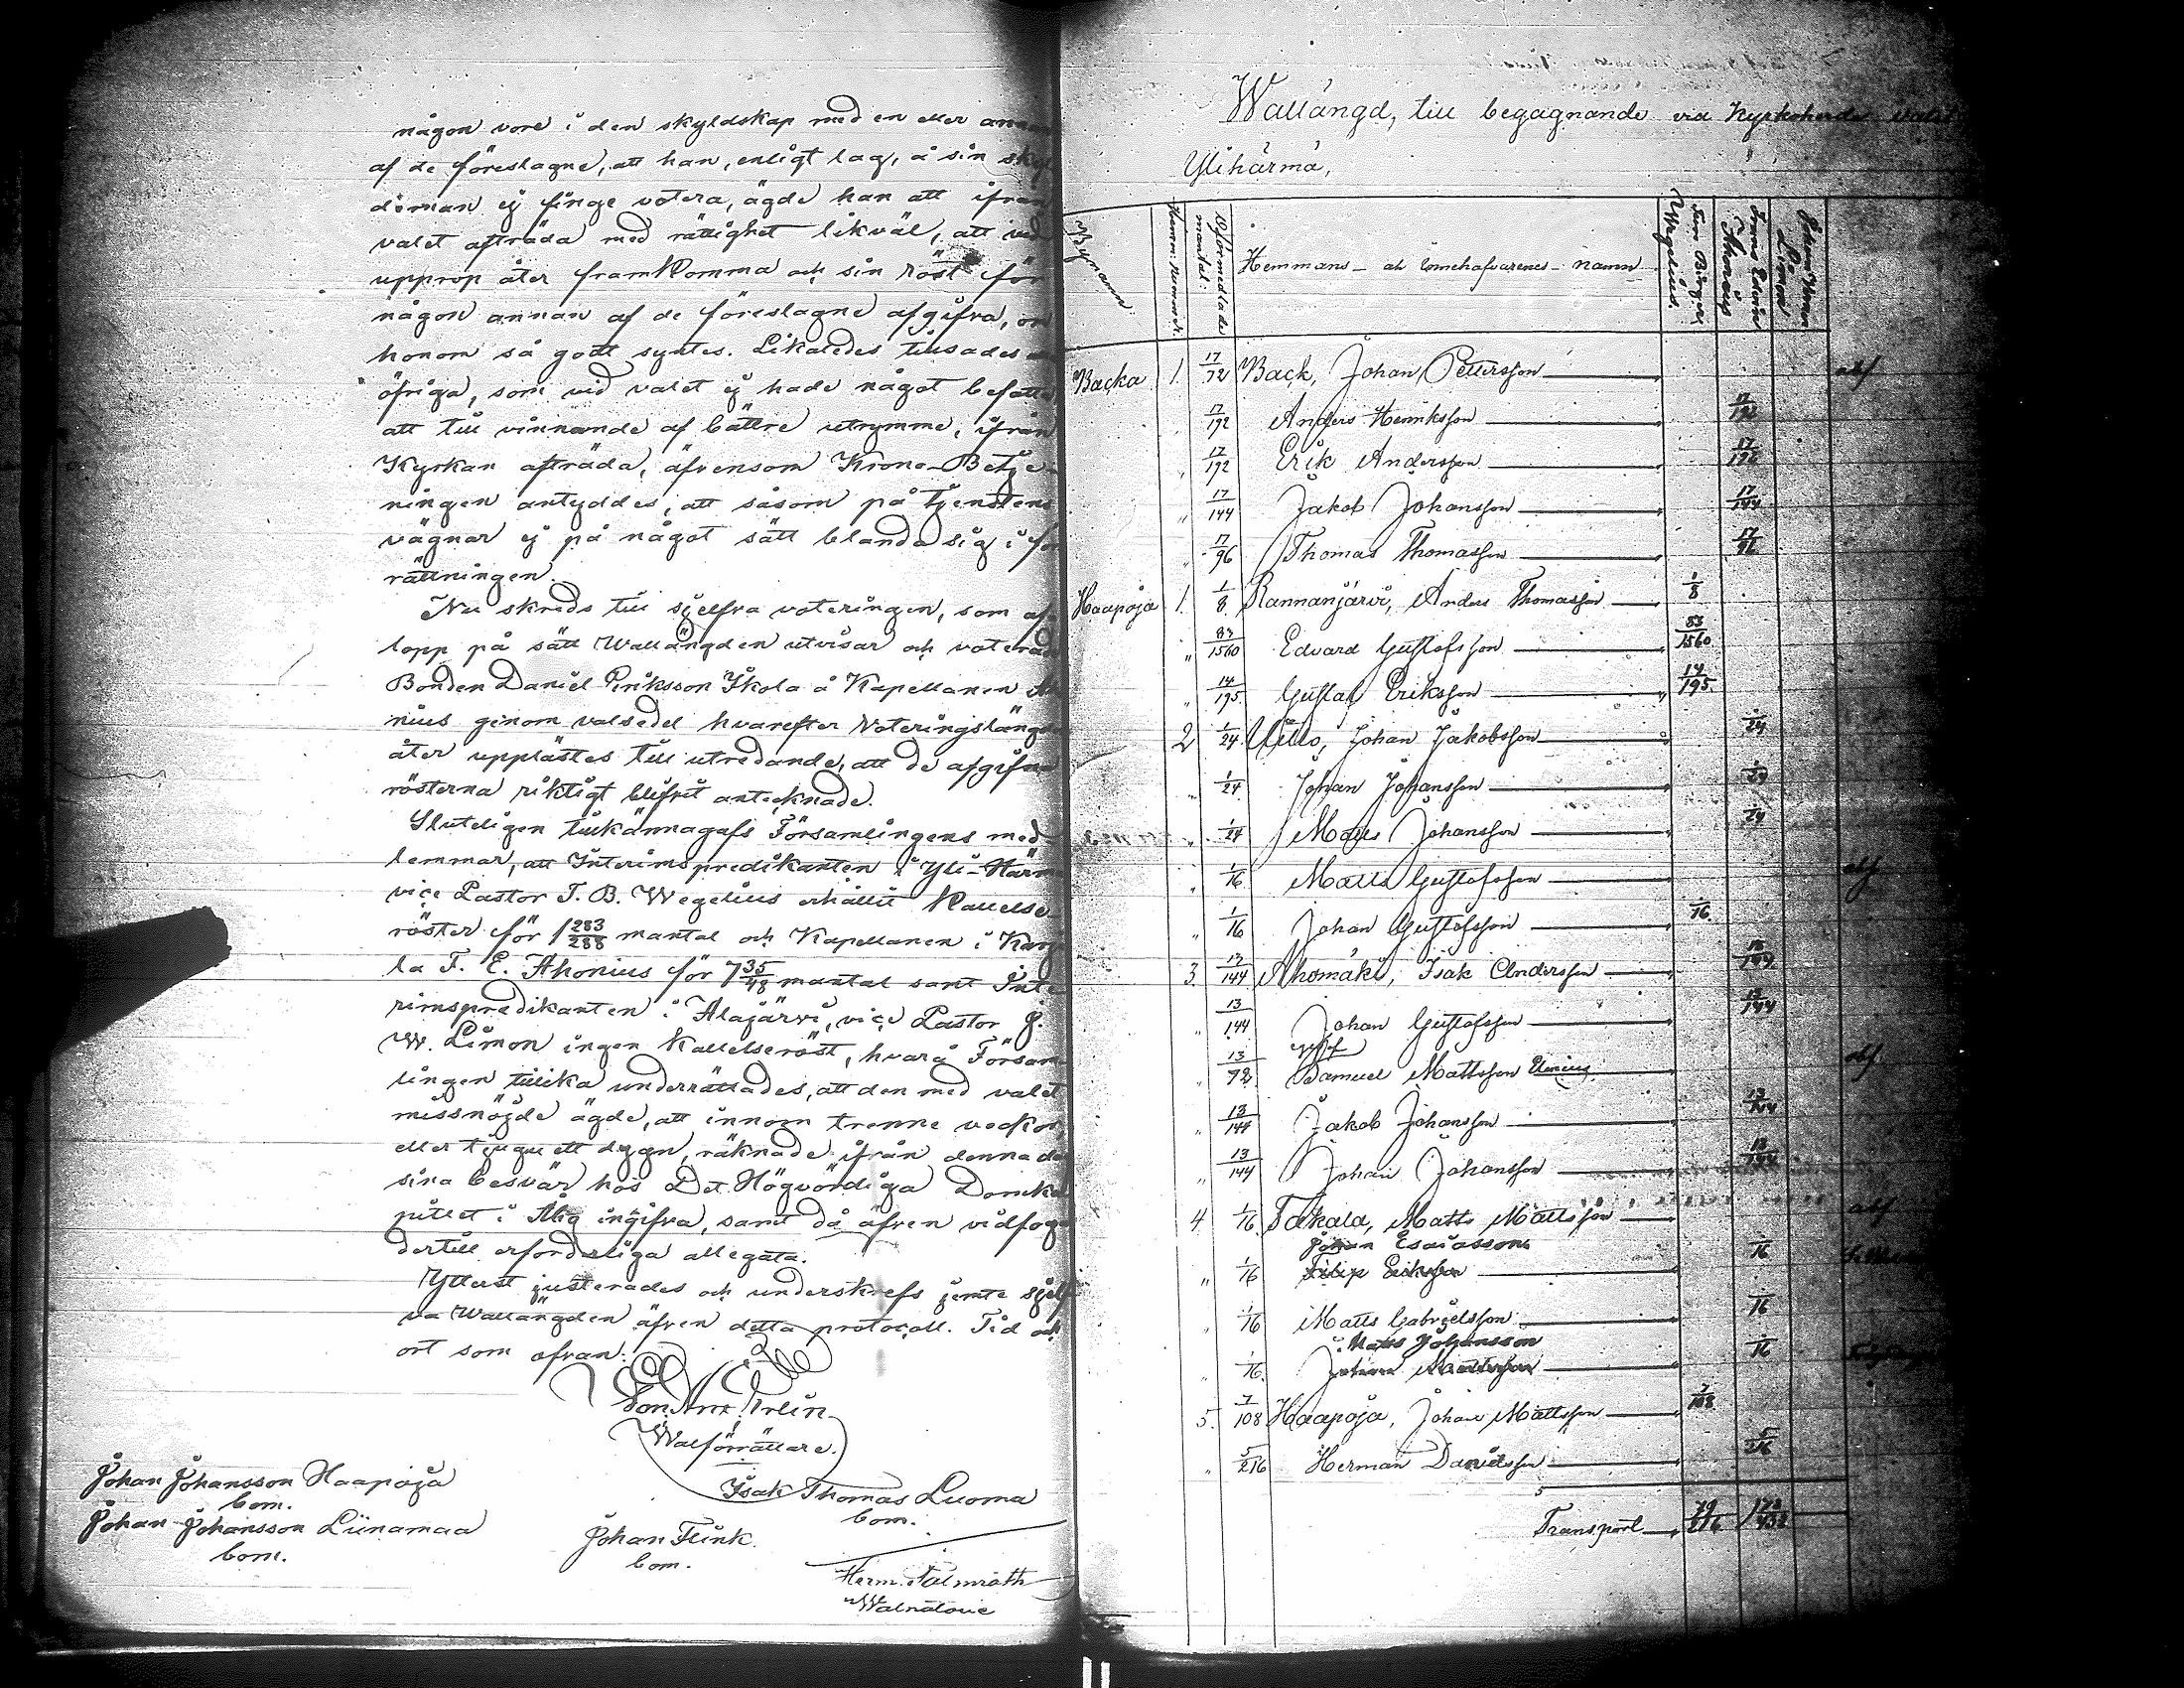 någon vore i den skyldskap med en eller annan
af de föreslagne, att han, enligt lag, å sin skyl
deman ej finge votera, ägde han att ifrån
valet afträda med rättighet likväl, att vid
upprop åter framkomma och sin röst för
någon annan af de föreslagne afgifva, om
honom så godt syntes. Likaledes tillsades
öfriga, som vid valet ej hade något befatta
att till vinnande af bättre utrymme, ifrån
Kyrkan afträda, äfvensom Krono-Betje-
ningen antyddes, att såsom på tjenstens
vägnar ej på något sätt blanda sig i för
rättningen.
Nu skreds till sjelfva voteringen, som af-
lopp på sätt Wallängden utvisar och voterade
Bonden Daniel Eriksson Ikola å Kapellanen Aho
nius genom valsedel hvarefter Voteringslängden
åter upplästes till utredande, att de afgifna
rösterna riktigt blifvit antecknade.
Sluteligen tillkännagafs Församlingens med-
lemmar, att Interimspredikanten i Yli-Härmä
vice Pastor F. B. Wegelius erhållit Kallelse-
röster för 1 283/288 mantal och Kapellanen i Karj
la F. E. Ahonius för 7 35/48 mantal samt Inte
rimspredikanten i Alajärvi, vice Pastor J.
W. Limon ingen Kallelseröst, hvarå Försam
lingen tillika underrättades, att den med valet
missnöjde ägde, att innom trenne veckor
eller tjuguett dygn, räknade ifrån denna dag
sina besvär hos Det Högvördiga Domka
pitlet i Åbo ingifva, samt då äfven vidfoga
dertill erforderliga allegata.
Ytterst justerades och underskrefs jemte sjelf
va Wallängden äfven detta protocoll. Tid och
ort som ofvan:
Walförrättare.
Johan Johansson Haapoja
bom.
Johan Johansson Liinamaa
bom.
Isak Thomas Luoma
bom.
Johan Flink
bom.
Herm.
Wallängd, till begagnande vid Kyrkoherde valet
Ylihärmä,
Bynamn Hemm: Nummer Oförmedlade mantal: Hemmans- och Innehafvarenes- namn Wegelius. Frans Edvin Ahonius Johan Limon
Backa 1. 17/72 Back, Johan Pettersson abs
17/192 Anders Henriksson 17/192
" 17/192 Erik Andersson 17/192
" 17/144 Jakob Johansson 17/144
" 17/96 Thomas Thomasson 17/96
Haapoja 1. 1/8 Rannanjärvi, Anders Thomasson 1/8
" 83/1560 Edvard Gustafsson 83/1560
" 14/195 Gustaf Eriksson 14/195
2 1/24 Johan Jakobsson 1/24
" 1/24 Johan Johansson 1/24
" 1/24 Matts Johansson 1/24
" 1/16 Matts Gustafsson abs
" 1/16 Johan Gustafsson 1/16
3. 13/144 Ahomäki, Isak Andersson 13/144
" 13/144 Johan Gustafsson 13/144
" 13/72 Samuel Mattsson abs
" 13/144 Jakob Johansson 13/144
" 13/144 Johan Johansson 13/144
4 1/16 Takala, Matts Mattsson abs
Johan Esaiasson
" 1/16 Filip Eriksson 1/16
" 1/16 Matts Gabrielsson 1/16
Matts Johansson
" 1/16 Johan Mattsson 1/16
5. 7/108 Haapoja, Johan Mattsson 7/108
" 5/216 Herman Danielsson 5/216
Transport 79/216